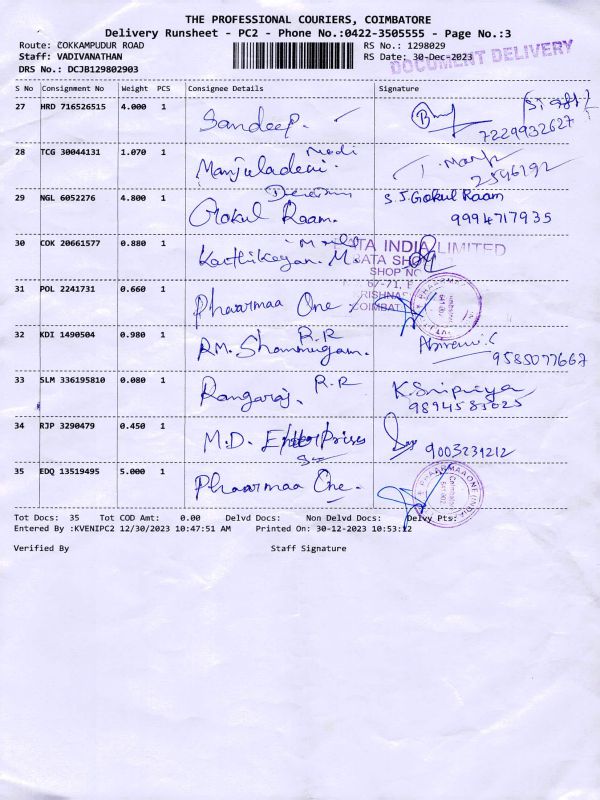 THE PROFESSIONAL COURIERS, COIMBATORE
Delivery Runsheet - PC2 - Phone No.:0422-3505555 - Page No.:3
Route: COKKAMPUDUR ROAD RS No.: 1298029
Staff: VADIVANATHAN RS Date: 30-Dec-2023
DOCUMENT DELIVERY
DRS No.: DCJB129802903
S No Consignment No Weight PCS Consignee Details Signature
27 HRD 716526515 4.000 1 Sandeep. Staff
7229932627
28 TCG 30044131 1.070 1 Manjuladevi.
2546192
29 NGL 6052276 4.800 1 Gokul Raam. S.J.Gokul Raam
9994717935
30 COK 20661577 0.880 1 Karthikeyan. M.
BATA INDIA LIMITED
BATA SHOP
SHOP NO
67-71,
31 POL 2241731 0.660 1 Pharmaa One
32 KDI 1490504 0.980 1 RM. Shanmugam. R.R
9585077667
33 SLM 336195810 0.080 1 Rangaraj. R.R
9894585025
34 RJP 3290479 0.450 1 M.D. Enterprises 9003239212
35 EDQ 13519495 5.000 1 Phaarmaa One.
Tot Docs: 35 Tot COD Amt: 0.00 Delvd Docs: Non Delvd Docs: Delvy Pts:
Entered By :KVENIPC2 12/30/2023 10:47:51 AM Printed On: 30-12-2023 10:53:12
Verified By Staff Signature